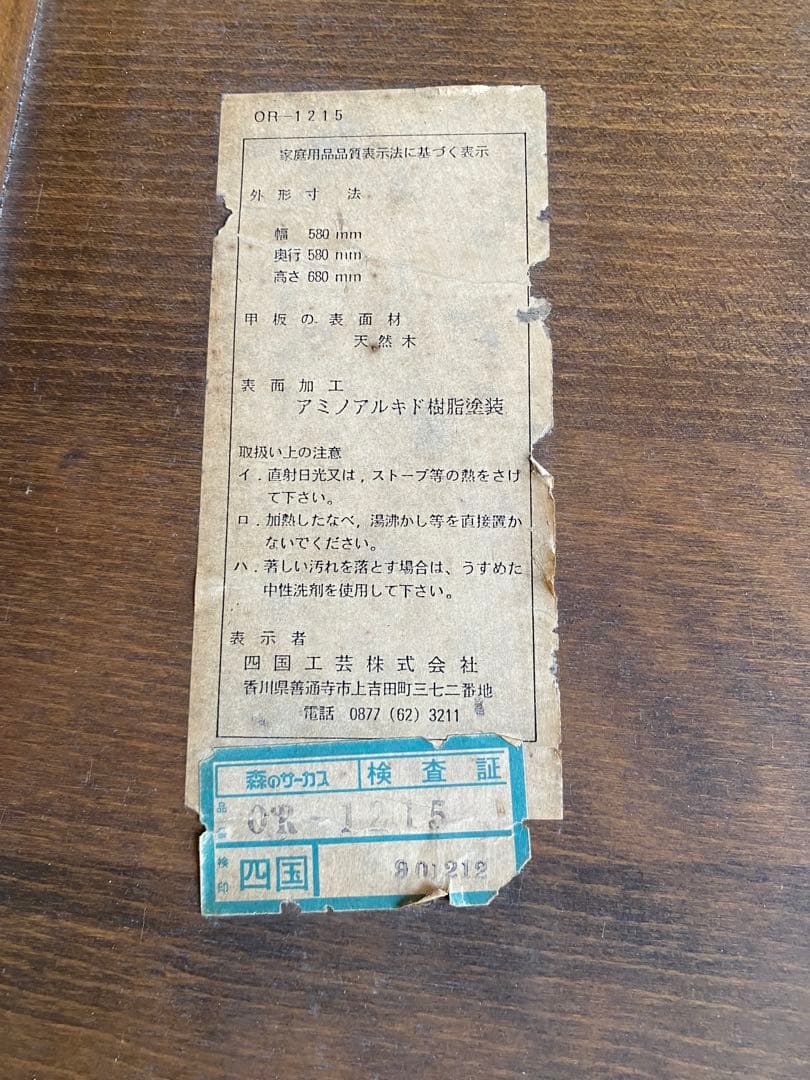 OR-1215
家庭用品品質表示法に基づく表示
外形寸 法
幅 580 mm
奥行 580 mm
高さ 680 mm
甲板の表面材
天然木
表面加工
アミノアルキド樹脂塗装
取扱い上の注意
イ．直射日光又は，ストーブ等の熱をさけ
て下さい。
ロ．加熱したなべ，湯沸かし等を直接置か
ないでください。
ハ．著しい汚れを落とす場合は、うすめた
中性洗剤を使用して下さい。
表示者
四国工芸株式会社
香川県善通寺市上吉田町三七二番地
電話 0877（62）3211
森のサーカス 検査証
品番 OR-1215
検印 四国 901212